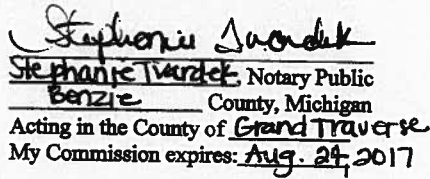 Stephanie Tvardek
Stephanie Tvardek, Notary Public
Benzie County, Michigan
Acting in the County of Grand Traverse
My Commission expires: Aug. 24, 2017